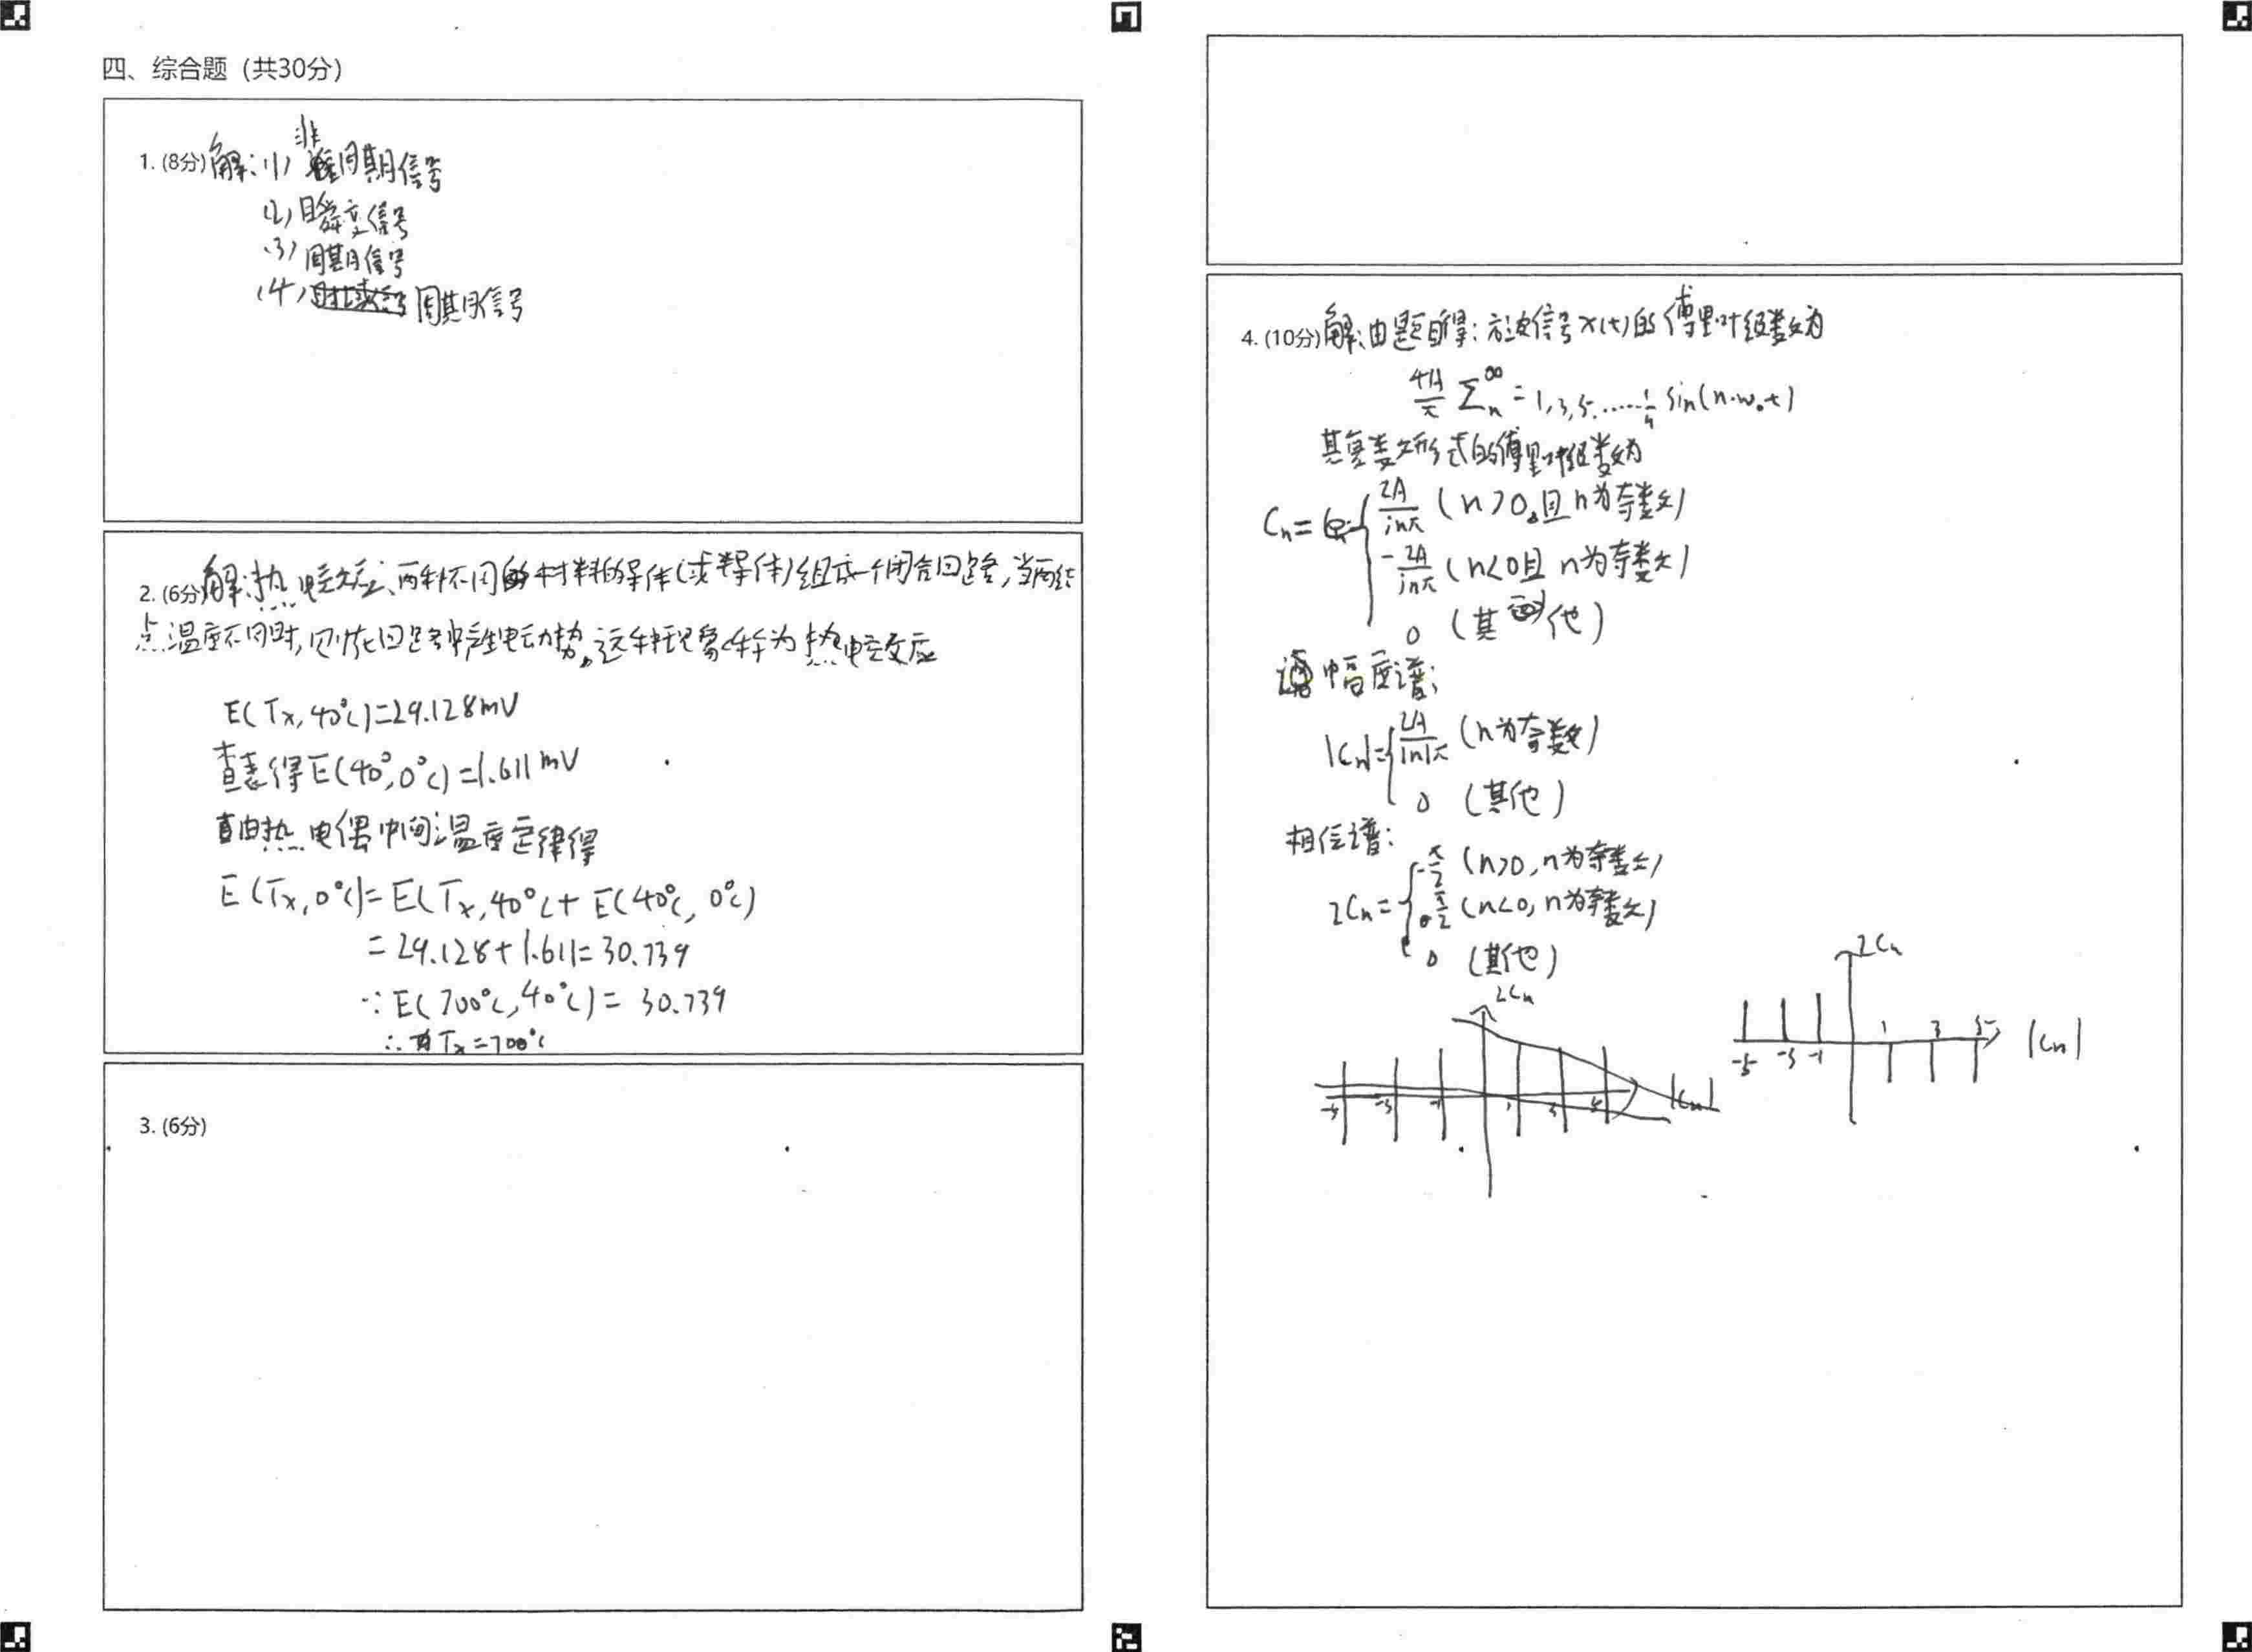 四、综合题（共30分）
1. (8分) 解：(1) 非周期信号
(2) 瞬变信号
(3) 周期信号
(4) 周期信号
2. (6分) 解：热电效应：两种不同材料的导体(或半导体)组成一个闭合回路，当两结
点温度不同时，则在回路中产生电动势。这种现象称为热电效应
E(Tx, 40℃)=29.128mV
查表得E(40°,0℃)=1.611mV
由热电偶中间温度定律得
E(Tx,0℃)=E(Tx,40℃+E(40℃, 0℃)
=29.128+1.611=30.739
∵E(700℃,40℃)= 30.739
∴Tx=700℃
3. (6分)
4. (10分) 解：由题可得：方波信号x(t)的傅里叶级数为
4A/π Σn^∞=1,3,5......1/n sin(n·w₀t)
其复数形式的傅里叶级数为
Cn= { 2A/jnπ (n>0且n为奇数)
-2A/jnπ (n<0且n为奇数)
0 (其他)
幅度谱：
|Cn|= { 2A/|n|π (n为奇数)
0 (其他)
相位谱：
∠Cn= { -π/2 (n>0,n为奇数)
π/2 (n<0,n为奇数)
0 (其他)
∠Cn
-5 -3 -1 1 3 5 |Cn|
∠Cn
-5 -3 -1 1 3 5 |Cn|